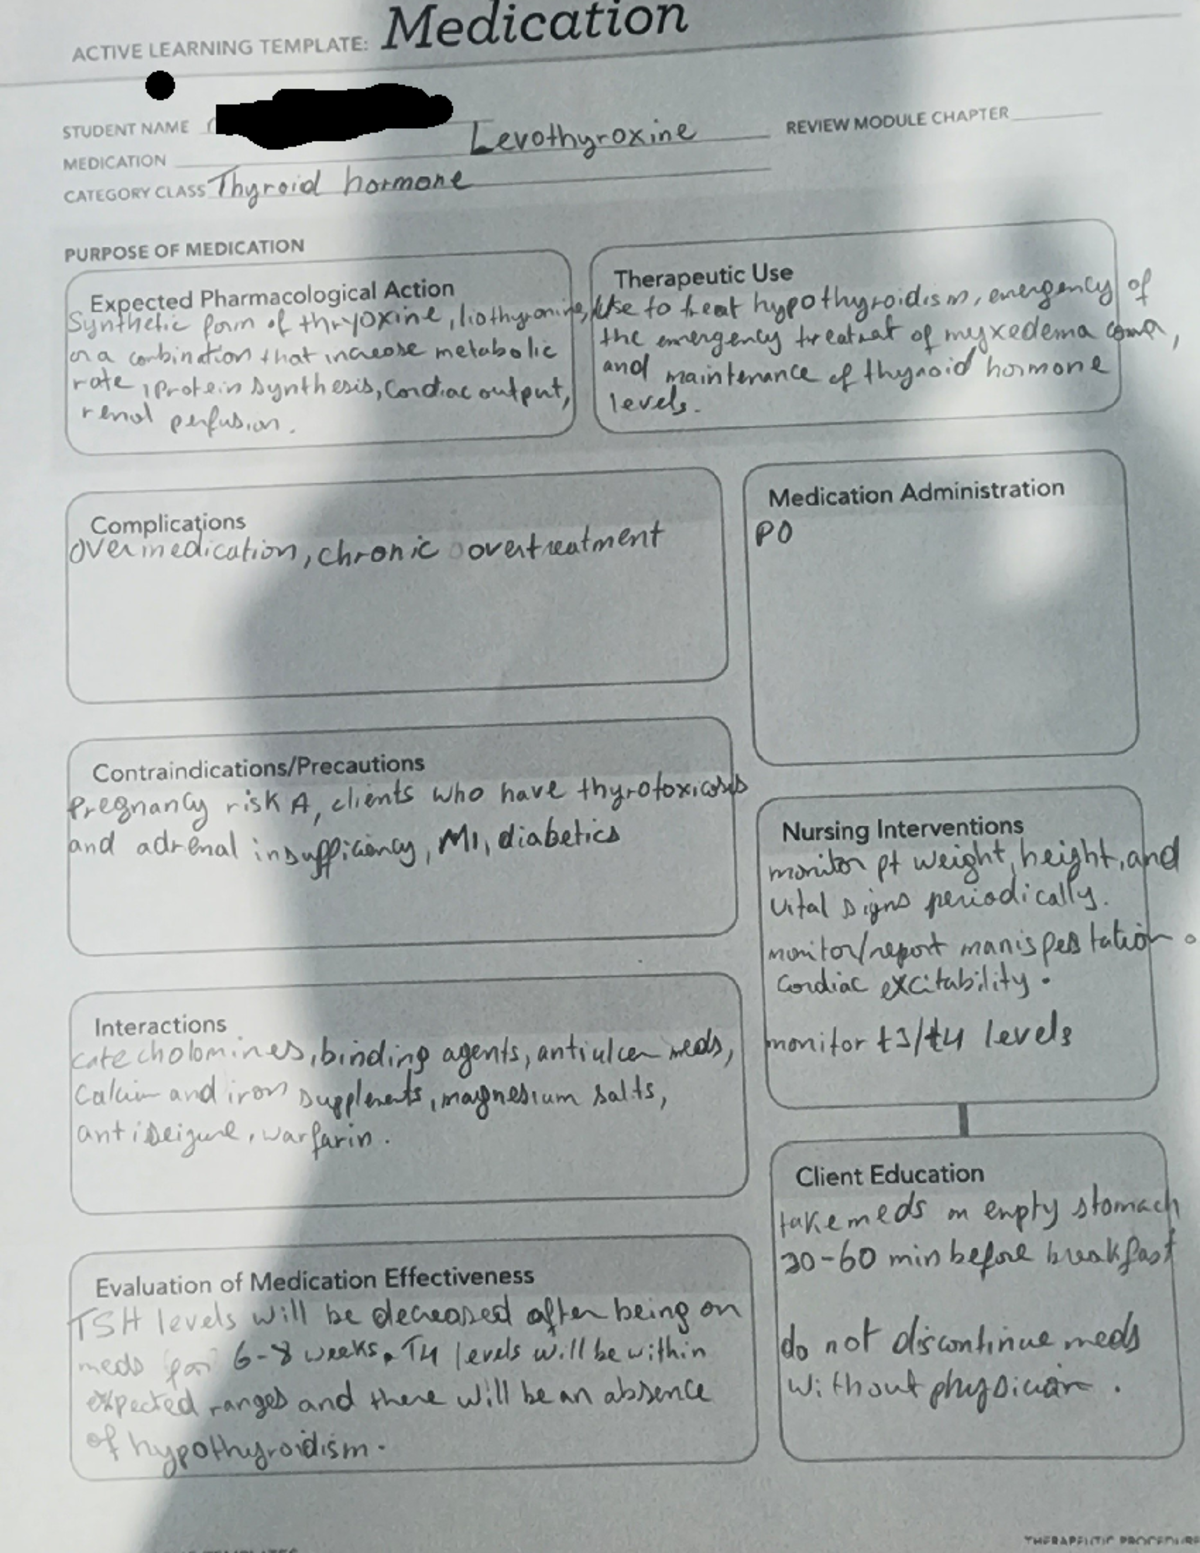 ACTIVE LEARNING TEMPLATE: Medication
STUDENT NAME
Levothyroxine
REVIEW MODULE CHAPTER
MEDICATION
CATEGORY CLASS Thyroid hormone
PURPOSE OF MEDICATION
Expected Pharmacological Action
Synthetic form of thryoxine, liothyronine,
or a combination that increase metabolic
rate, protein synthesis, cardiac output,
renal perfusion.
Therapeutic Use
Use to treat hypothyroidism, emergency of
the emergency treatnat of myxedema coma,
and maintenance of thyroid hormone
levels.
Complications
overmedication, chronic overtreatment
Medication Administration
PO
Contraindications/Precautions
Pregnancy risk A, clients who have thyrotoxicosis
and adrenal insufficiency, MI, diabetics
Nursing Interventions
monitor pt weight, height, and
vital signs periodically.
monitor/report manispestation.
cardiac excitability.
monitor t3/t4 levels
Interactions
catecholomines, binding agents, antiulcer meds,
calcium and iron supplements, magnesium salts,
antiseizure, warfarin.
Client Education
take meds on empty stomach
30-60 min before breakfast
do not discontinue meds
without physician.
Evaluation of Medication Effectiveness
TSH levels will be decreased after being on
meds for 6-8 weeks. T4 levels will be within
expected ranges and there will be an absence
of hypothyroidism.
THERAPEUTIC PROCEDURE